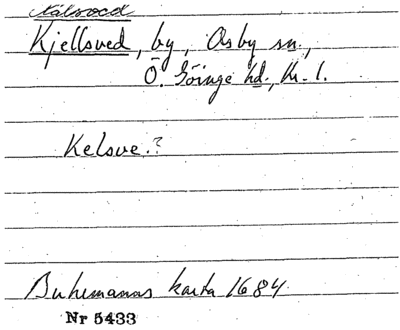 Kälsved
Kjellsved, by, Osby sn.,
Ö. Göinge hd., Kr. l.
Kelsve.?
Buhrmanns karta 1684.
Nr 5433